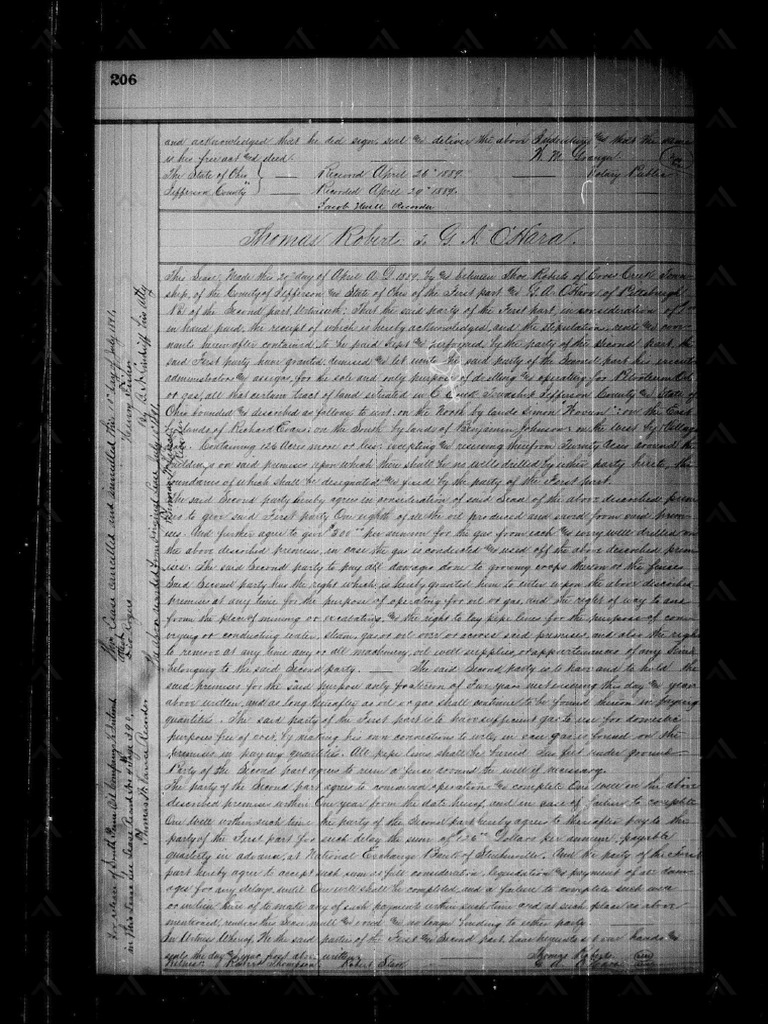 206
and acknowledged that he did sign, seal and deliver the above Indenture and that the same
is his free act and deed.
The State of Ohio Received April 26" 1889. Notary Public
Jefferson County Recorded April 29" 1889.
Jacob Hull Recorder
Thomas Roberts to G. A. O'Hara.
This Lease, Made this 20 day of April A.D. 1889. by and between Thos. Roberts of Cross Creek Town-
ship, of the County of Jefferson and State of Ohio of the First part and G. A. O'Hara of Pittsburgh
Pa. of the Second part, Witnesseth: That the said party of the First part, in consideration of
in hand paid, the receipt of which is hereby acknowledged, and the stipulations, rents and cove-
nants hereinafter contained, to be paid kept and performed by the party of the second part, the
said First party have granted, demised and let unto the said party of the Second part his executors
administrators assigns, for the sole and only purpose of drilling and operating for Petroleum Oil
or gas, all that certain tract of land situated in C. Creek Township Jefferson County and State of
Ohio bounded and described as follows to wit: on the North by lands Simon on the East
by lands of Richard Evans, on the South by lands of Benjamin Johnson on the West by
Containing 126 Acres more or less: excepting and reserving therefrom Twenty Acres around the
buildings on said premises upon which there shall be no wells drilled by either party hereto, the
boundaries of which shall be designated and fixed by the party of the First part.
The said Second party hereby agrees in consideration of said Lease of the above described prem-
ises to give said First party One eighth of all the oil produced and saved from said prem-
ises. And further agree to give $200 per annum for the gas from each and every well drilled on
the above described premises, in case the gas is conducted and used off the above described prem-
ises. The said Second party to pay all damages done to growing crops thereon or the fences
Said Second party has the right which is hereby granted him to enter upon the above described
premises at any time for the purpose of operating for oil or gas, and the right of way to and
from the place of mining or excavating, and the right to lay pipe lines for the purpose of conv-
eying or conducting water, steam, gas or oil over or across said premises, and also the right
to remove at any time any or all machinery, oil well supplies, or appurtenances of any kind
belonging to the said Second party. The said Second party is to have and to hold the
said premises for the said purpose only for a term of Two years next ensuing this day and year
above written, and as long thereafter as oil or gas shall continue to be found thereon in paying
quantities. The said party of the First part is to have sufficient gas to use for domestic
purposes free of cost, by making his own connections to wells, in case gas is found on the
premises in paying quantities. All pipe lines shall be buried two feet under ground
Party of the Second part agrees to run a fence around the well if necessary.
The party of the Second part agrees to commence operations and complete One well on the above
described premises within One year from the date hereof, and in case of failure to complete
One Well within such time the party of the Second part hereby agrees to thereafter pay to the
party of the First part for such delay the sum of 126 Dollars per annum, payable
quarterly in advance, at National Exchange Bank of Steubenville. And the party of the First
part hereby agree to accept such sum as full consideration, liquidation and payment of all dam-
ages for any delays until One well shall be completed, and a failure to complete such well
or in lieu thereof to make any of such payments within such time and at such place as above
mentioned, renders this lease null and void and no longer binding to either party.
In Witness Whereof, We the said parties of the First and Second part, have hereunto set our hands and
seals the day and year first above written.
Witness: Robert Thompson Robert Thomas Roberts
G. A. O'Hara
This Lease cancelled and annulled the day of July 1891.
Attest
Geo Rogers
For release of South Penn Oil Company's Interest
in this Lease see Lease Record
Recorder